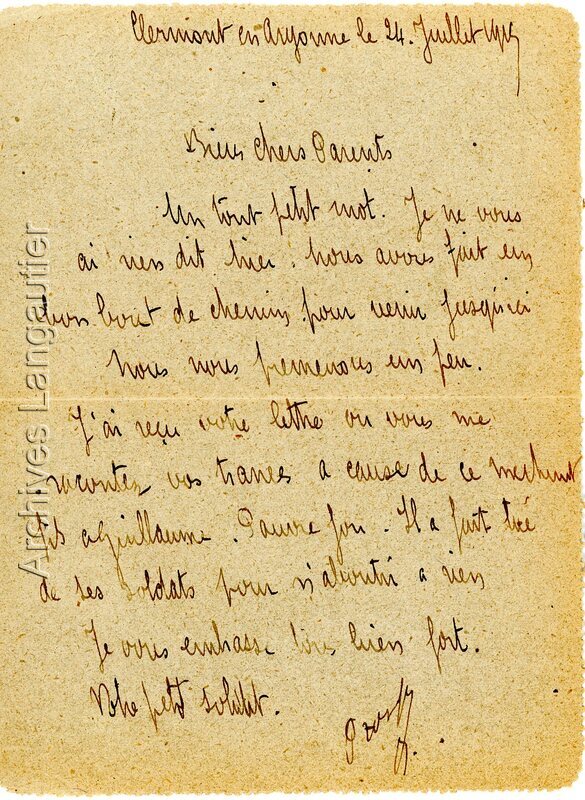 Clermont en Argonne le 24. Juillet 1915
Biens chers Parents
Un tout petit mot. Je ne vous
ai rien dit hier. Nous avons fait un
bon bout de chemin pour venir jusqu'ici
Nous nous promenons un peu.
J'ai reçu votre lettre ou vous me
racontez vos transes a cause de ce mechant
fils a Guillaume. Pauvre fou. Il a fait tué
de ses soldats pour n'aboutir a rien
Je vous embrasse tous bien fort.
Votre petit soldat.
Archives Langautier